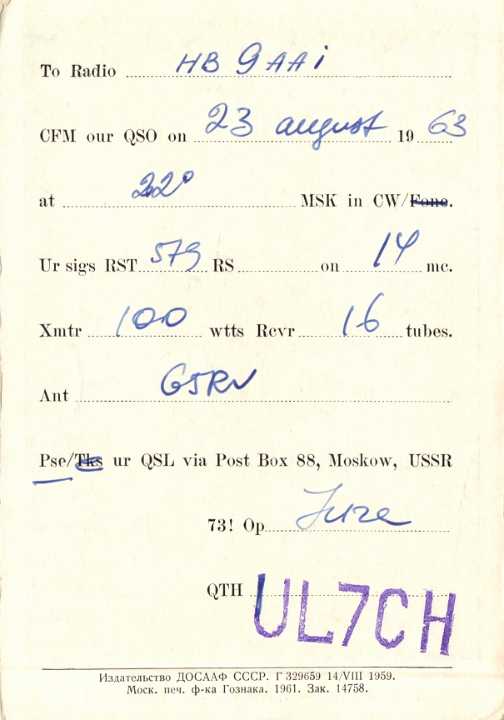 To Radio HB 9 AAi
CFM our QSO on 23 august 19 63
at 22⁰ MSK in CW/Fone.
Ur sigs RST 579 RS on 14 mc.
Xmtr 100 wtts Rcvr 16 tubes.
Ant G5RV
Pse/Tks ur QSL via Post Box 88, Moskow, USSR
73! Op
QTH UL7CH
Издательство ДОСААФ СССР. Г 329659 14/VIII 1959.
Моск. печ. ф-ка Гознака. 1961. Зак. 14758.